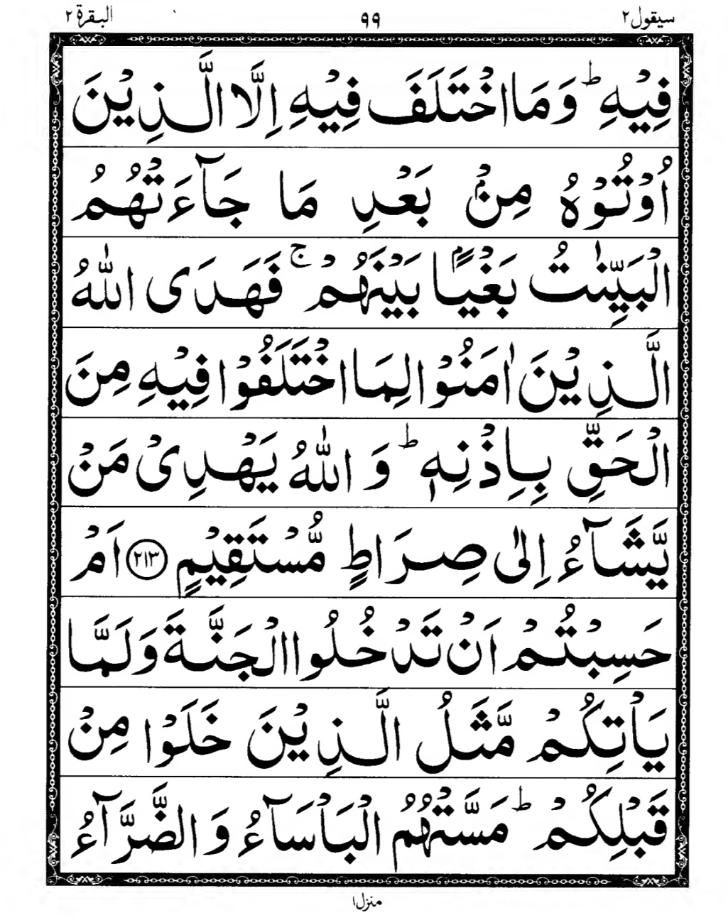 سیقول ٢ ٩٩ البقرة ٢
فِيْهِ ؕ وَ مَا اخْتَلَفَ فِيْهِ اِلَّا الَّذِيْنَ
اُوْتُوْهُ مِنْۢ بَعْدِ مَا جَآءَتْهُمُ
الْبَيِّنٰتُ بَغْيًۢا بَيْنَهُمْ ۚ فَهَدَى اللّٰهُ
الَّذِيْنَ اٰمَنُوْا لِمَا اخْتَلَفُوْا فِيْهِ مِنَ
الْحَقِّ بِاِذْنِهٖ ؕ وَ اللّٰهُ يَهْدِيْ مَنْ
يَّشَآءُ اِلٰى صِرَاطٍ مُّسْتَقِيْمٍ ﴿٢١٣﴾ اَمْ
حَسِبْتُمْ اَنْ تَدْخُلُوا الْجَنَّةَ وَ لَمَّا
يَاْتِكُمْ مَّثَلُ الَّذِيْنَ خَلَوْا مِنْ
قَبْلِكُمْ ؕ مَسَّتْهُمُ الْبَاْسَآءُ وَ الضَّرَّآءُ
منزل ١